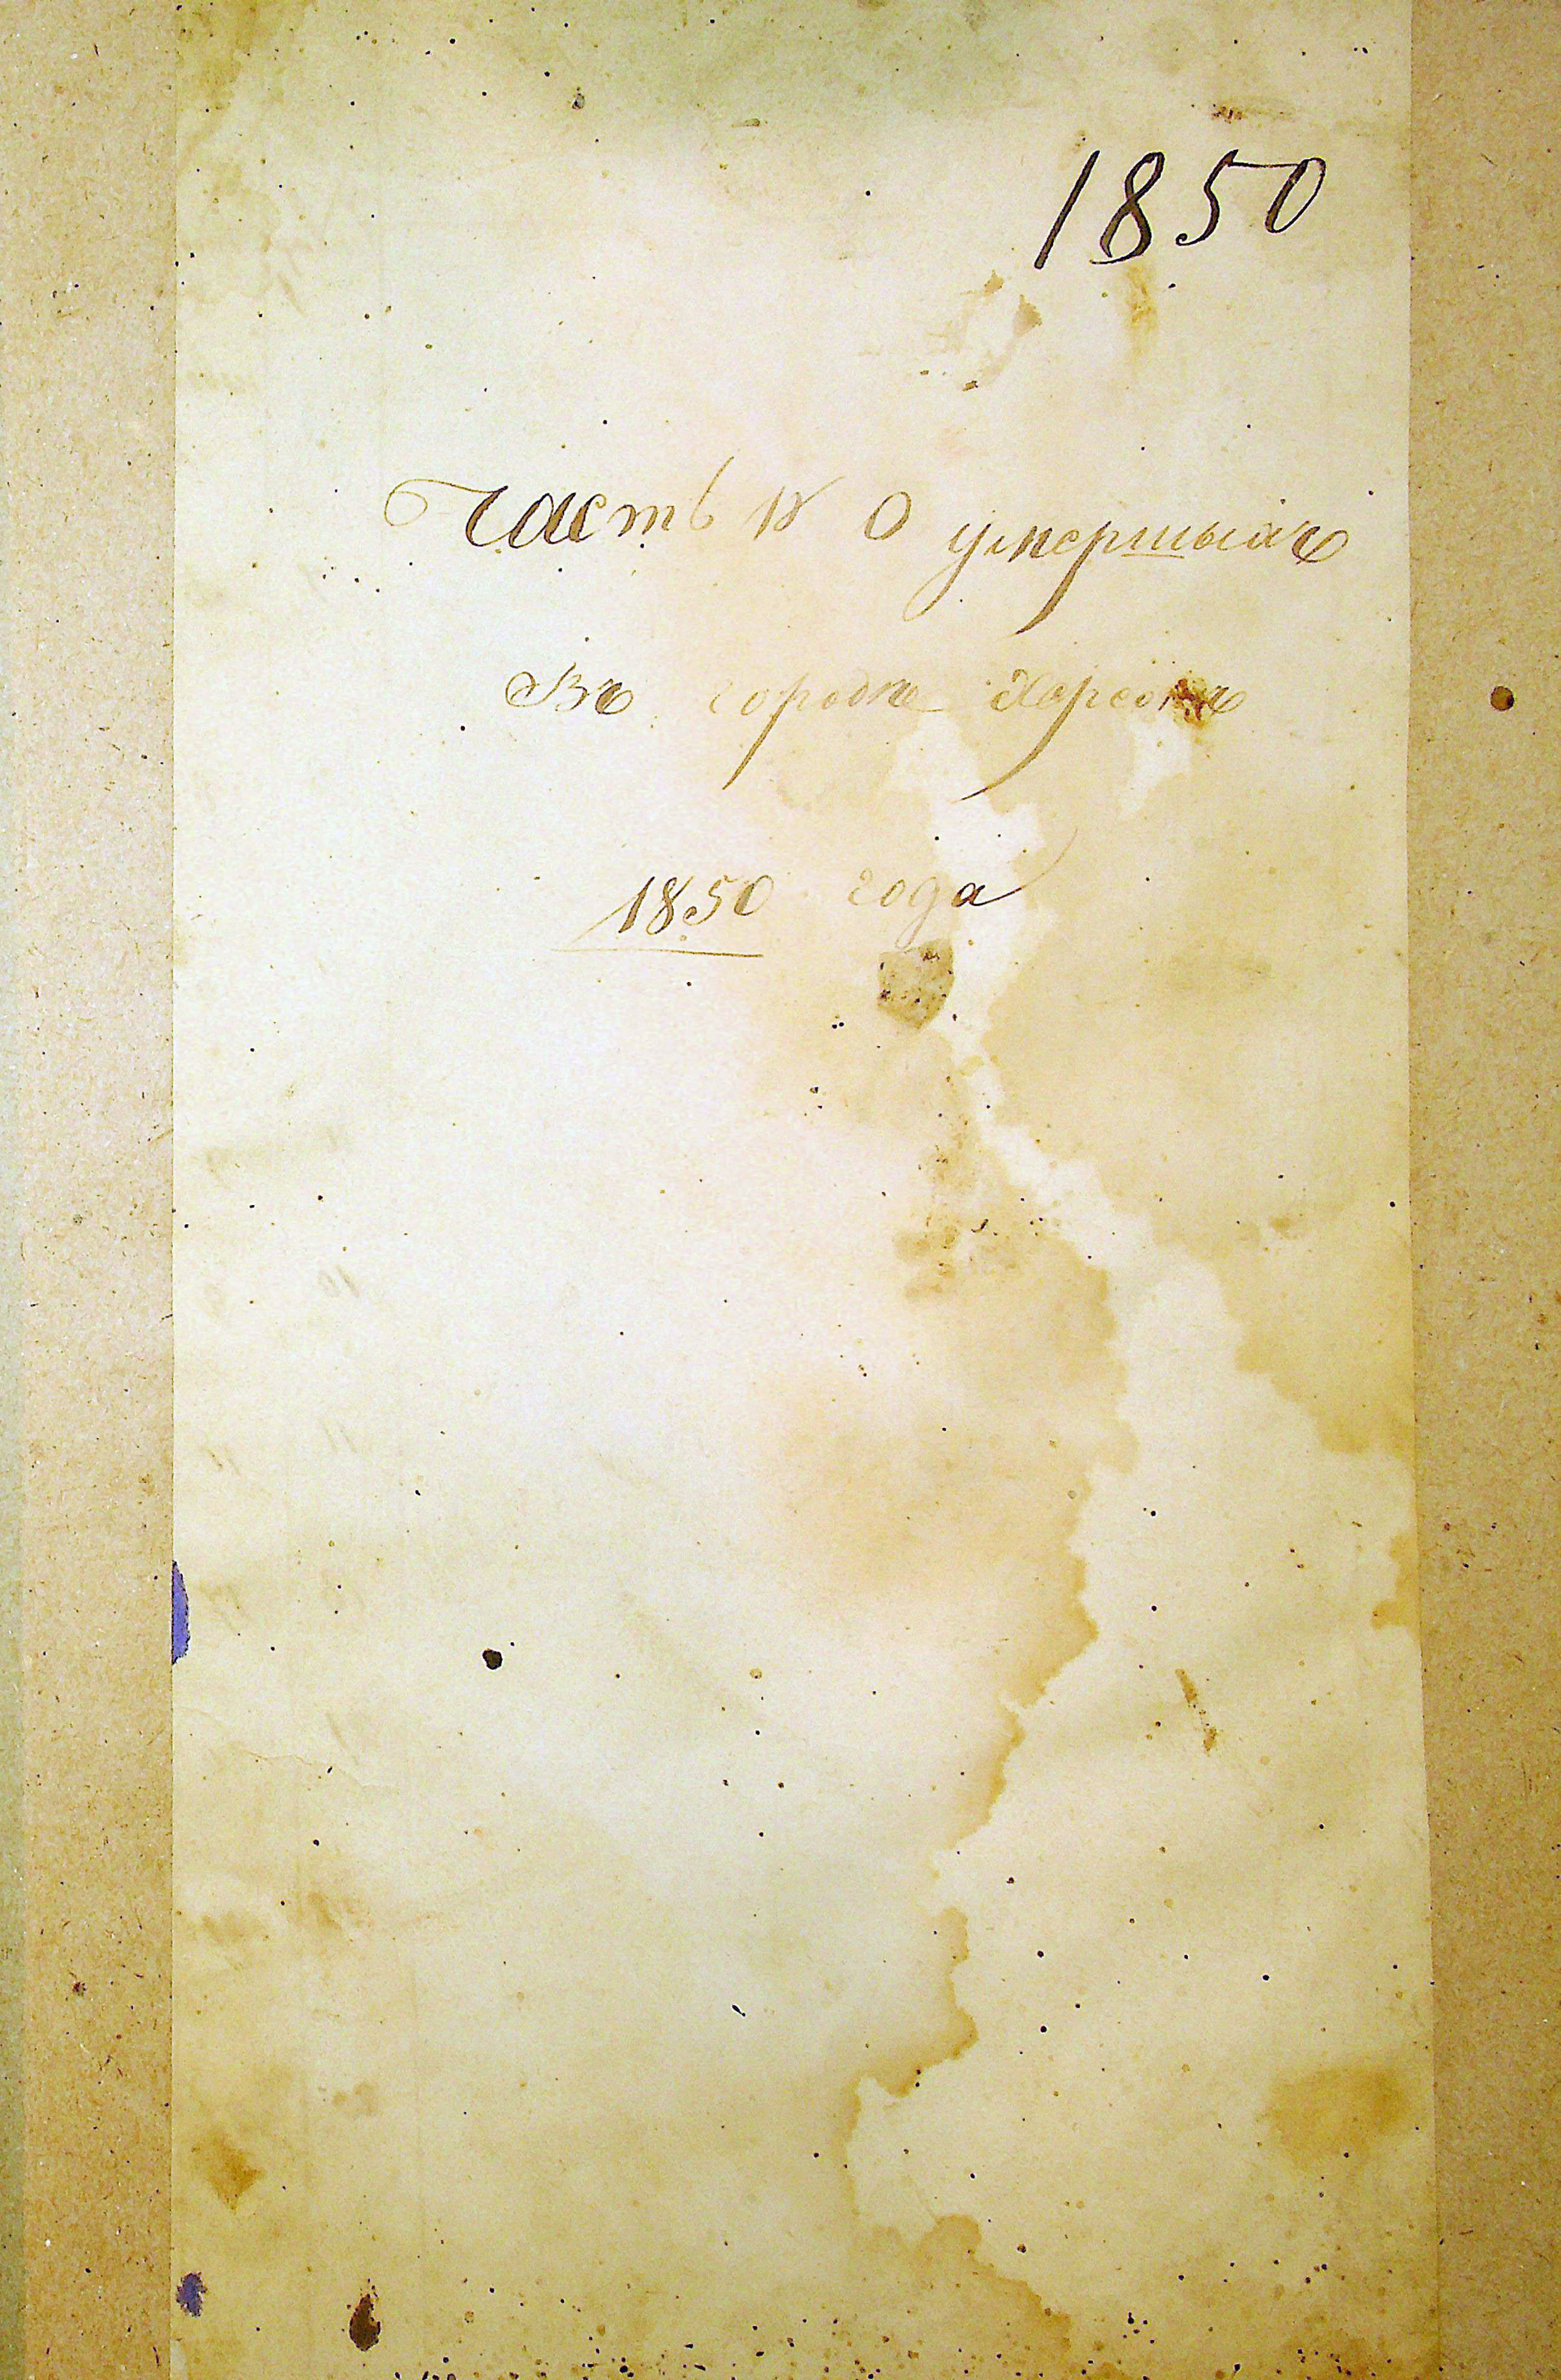 1850
Часть IV О умершыхъ
Въ городѣ Херсонѣ
1850 года